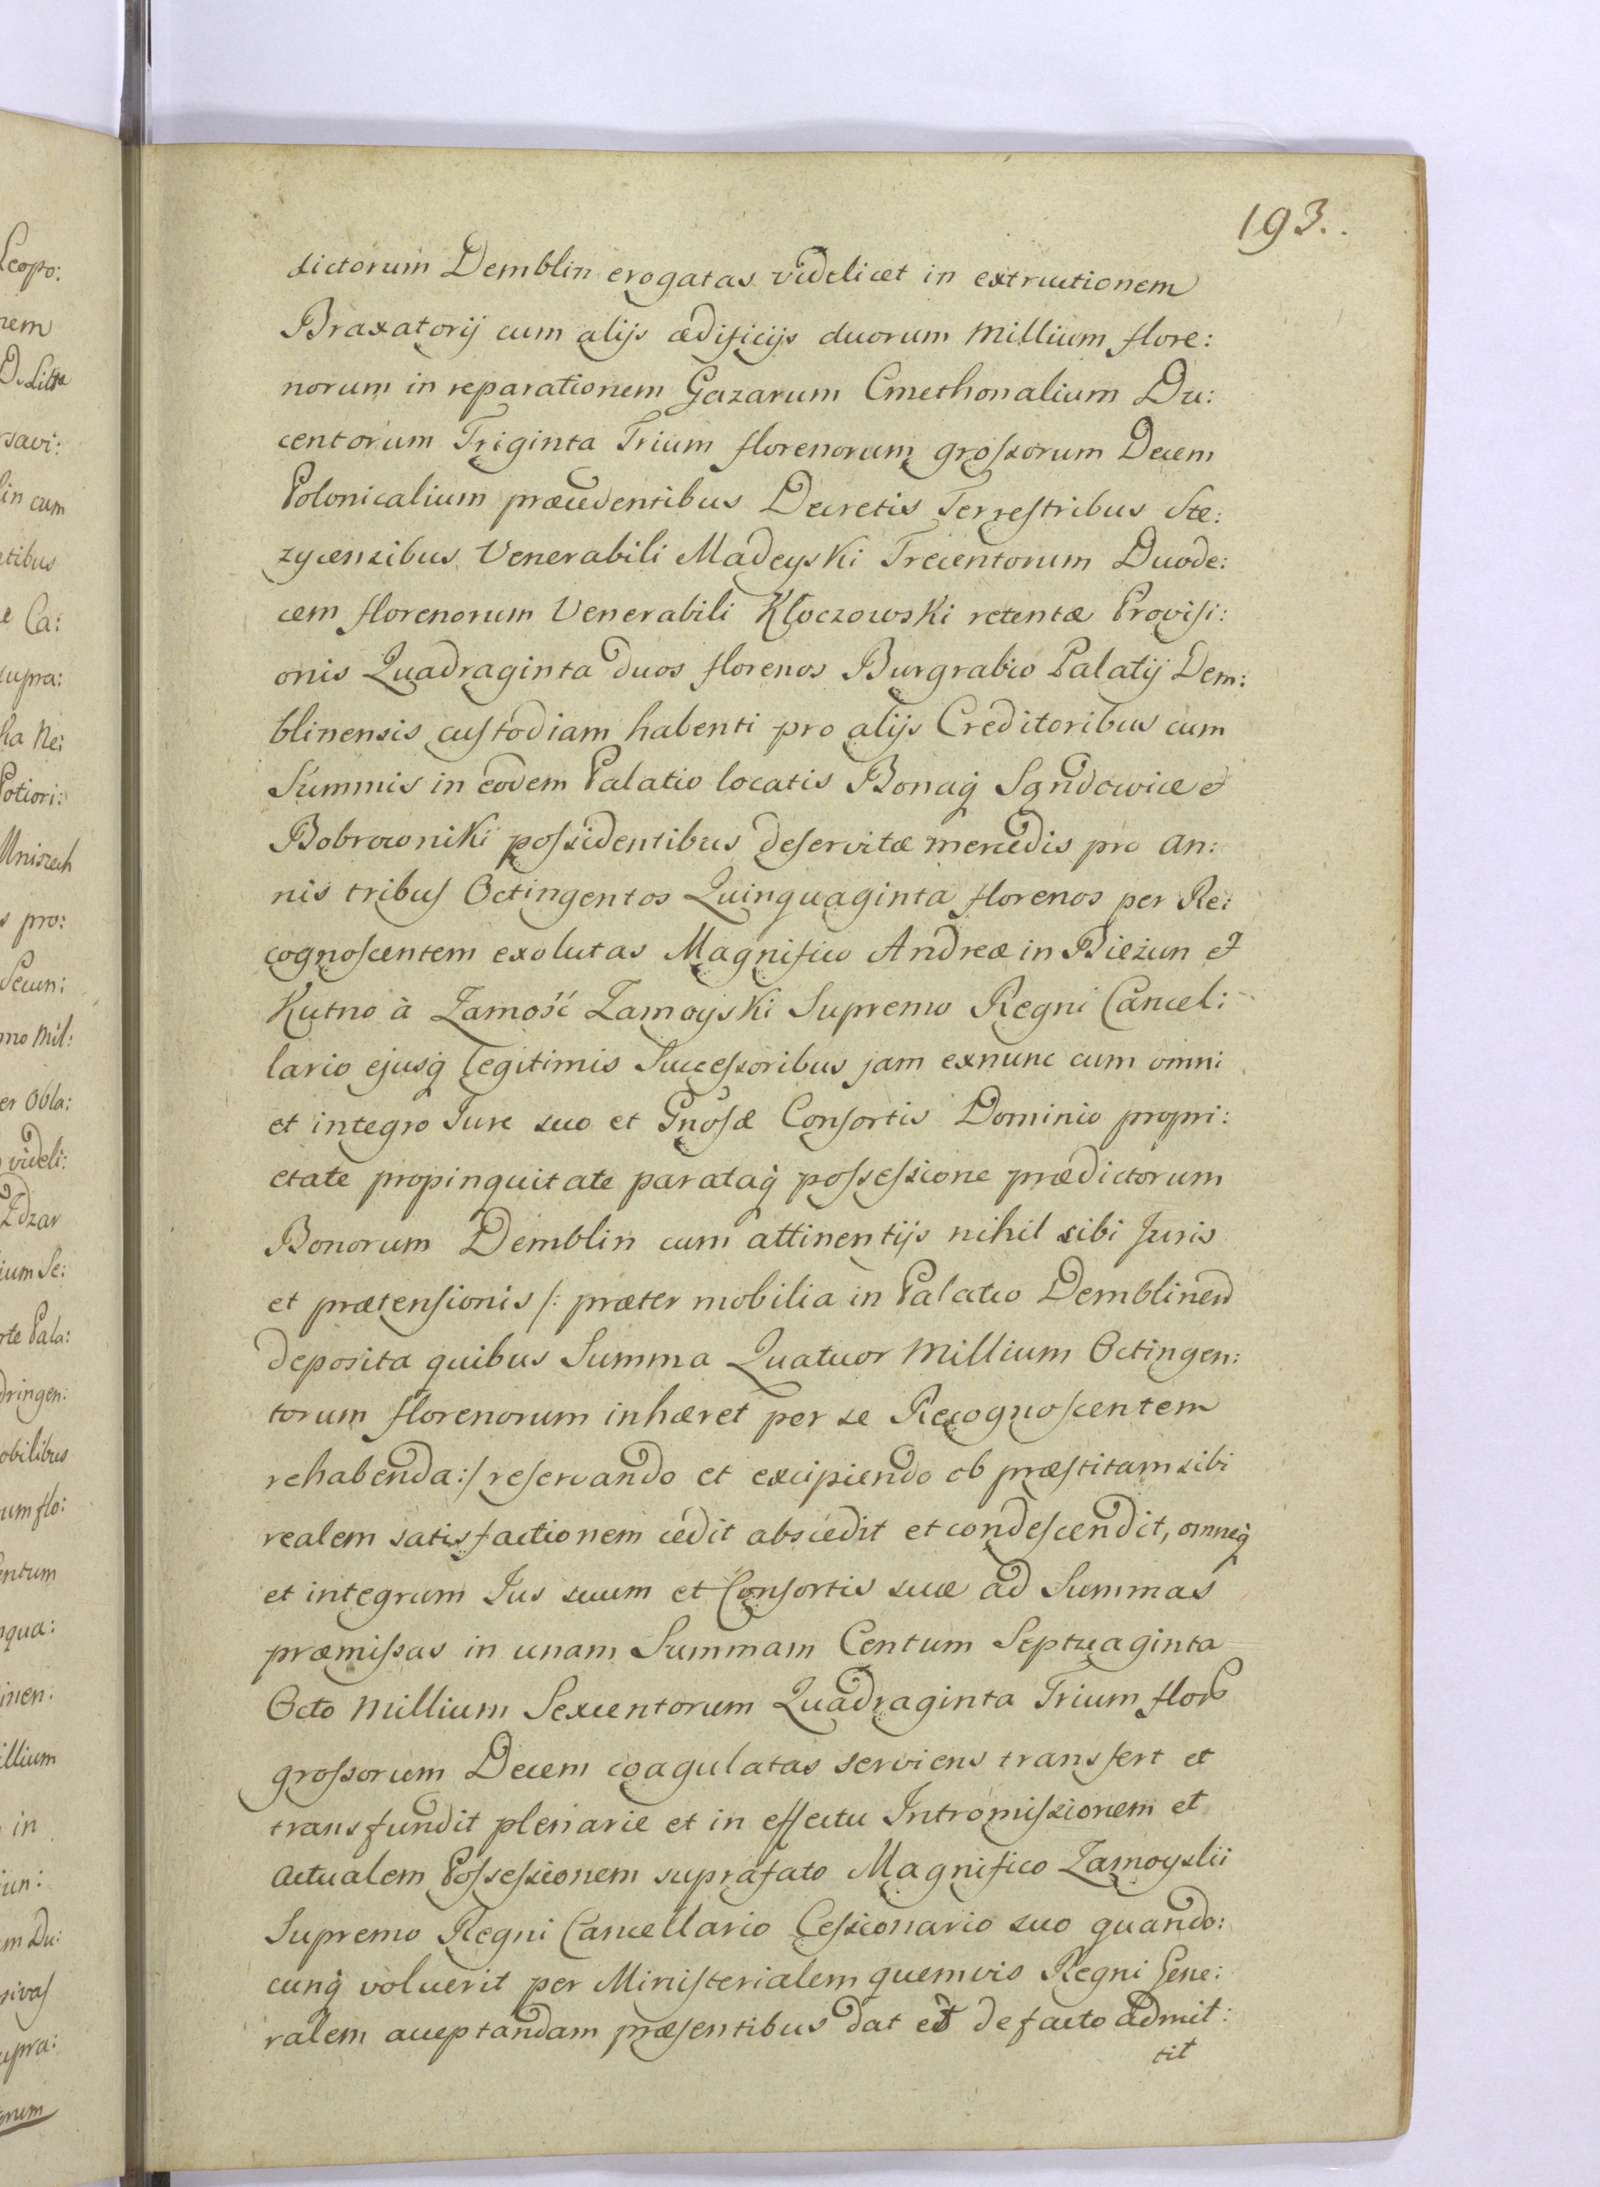 193.
dictorum Demblin erogatas videlicet in extructionem
Braxatorij cum alijs ædificijs duorum Millium flore:
norum in reparationem Gazarum Cmethonalium Du:
centorum Triginta Trium florenorum grossorum Decem
Polonicalium præcedentibus Decretis Terrestribus Stę:
zycensibus Venerabili Madeyski Trecentorum Duode:
cem florenorum Venerabili Kłoczowski retentæ Provisi:
onis Quadraginta duos florenos Burgrabio Palatij Dem:
blinensis custodiam habenti pro alijs Creditoribus cum
Summis in eodem Palatio locatis Bonaq Sędowice et
Bobrowniki possidentibus deservitæ mercedis pro an:
nis tribus Octingentos Quinquaginta florenos per Re:
cognoscentem exolutas Magnifico Andreæ in Bieżun et
Kutno à Zamość Zamoyski Supremo Regni Cancel:
lario ejusq legitimis Successoribus jam exnunc cum omni
et integro Jure suo et Gnosæ Consortis Dominio propri:
etate propinquitate parataq possessione prædictorum
Bonorum Demblin cum attinentijs nihil sibi Juris
et prætensionis /: præter mobilia in Palatio Demblinen
deposita quibus Summa Quatuor Millium Octingen:
torum florenorum inhæret per se Recognoscentem
rehabenda :/ reservando et excipiendo ob præstitam sibi
realem satisfactionem cedit abscedit et condescendit, omneq
et integrum Jus suum et Consortis suæ ad Summas
præmissas in unam Summam Centum Septuaginta
Octo Millium Sexcentorum Quadraginta Trium flor
grossorum Decem coagulatas serviens transfert et
transfundit plenarie et in effectu Intromissionem et
actualem Possessionem suprafato Magnifico Zamoyski
Supremo Regni Cancellario Cessionario suo quando:
cunq voluerit per Ministerialem quemvis Regni Gene:
ralem acceptandam præsentibus dat et de facto admit:
tit
Leopo:
rsavi:
lin cum
e Ca:
supra:
Potiori:
Mniszech
s pro:
Secun:
mo Mil:
er Obla:
videli:
Zdzar
ium Se:
rte Pala:
dringen:
obilibus
um flo:
entum
nqua:
inen:
illium
in
iun:
m Du:
upra:
orum